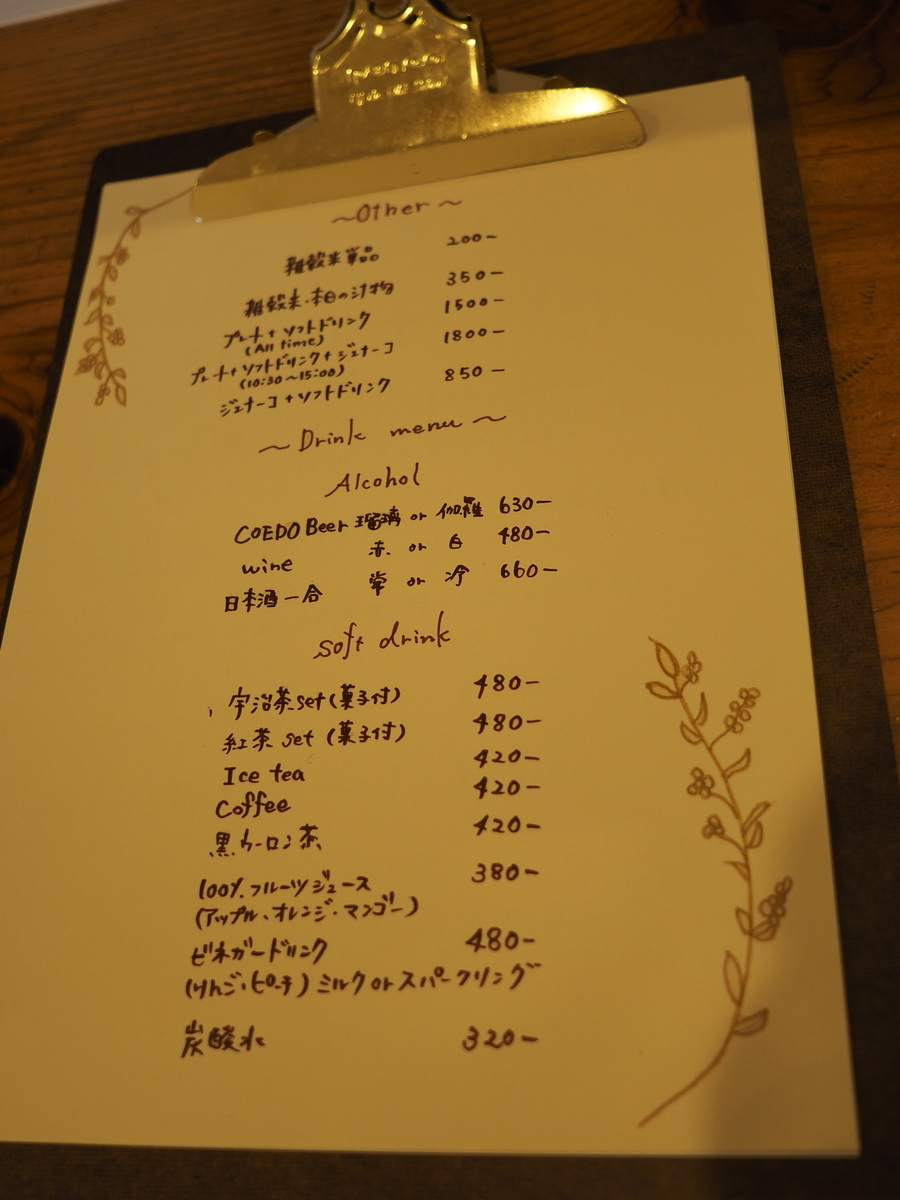 ~Other~
雑穀米単品 200-
雑穀米・本日の汁物 350-
プレート+ソフトドリンク 1500-
(All time)
プレート+ソフトドリンク+ジェナーコ 1800-
(10:30~15:00)
ジェナーコ+ソフトドリンク 850-
~Drink menu~
Alcohol
COEDO Beer 瑠璃 or 伽羅 630-
wine 赤 or 白 480-
日本酒一合 常 or 冷 660-
soft drink
宇治茶set(菓子付) 480-
紅茶 set (菓子付) 480-
Ice tea 420-
Coffee 420-
黒ウーロン茶 420-
100%フルーツジュース 380-
(アップル、オレンジ・マンゴー)
ビネガードリンク 480-
(りんご・ピーチ) ミルク or スパークリング
炭酸水 320-